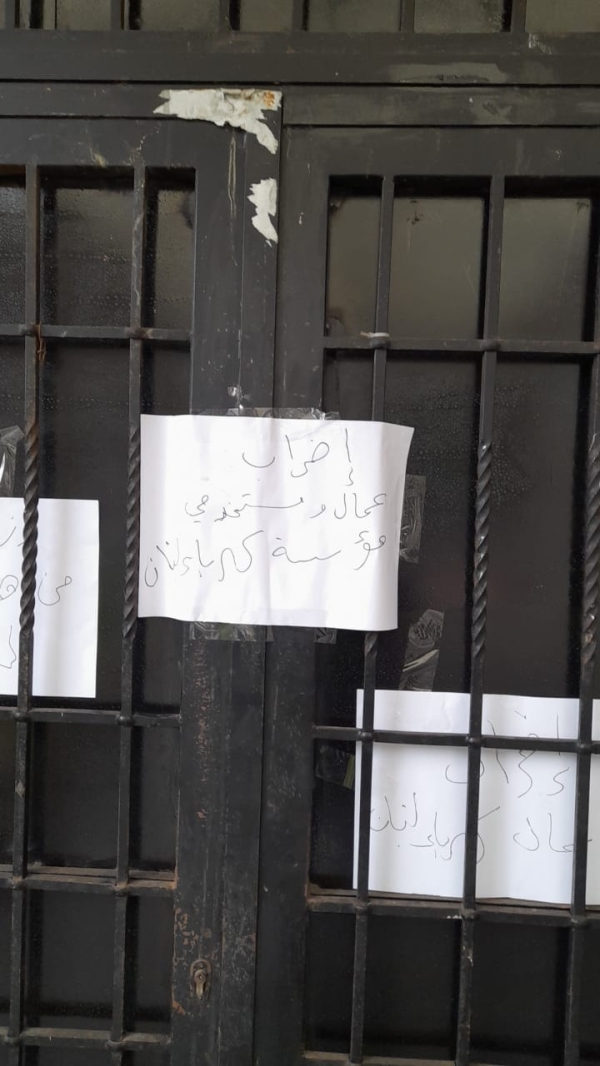 إضراب
عمال ومستخدمي
مؤسسة كهرباء لبنان
إضراب
عمال كهرباء لبنان
من